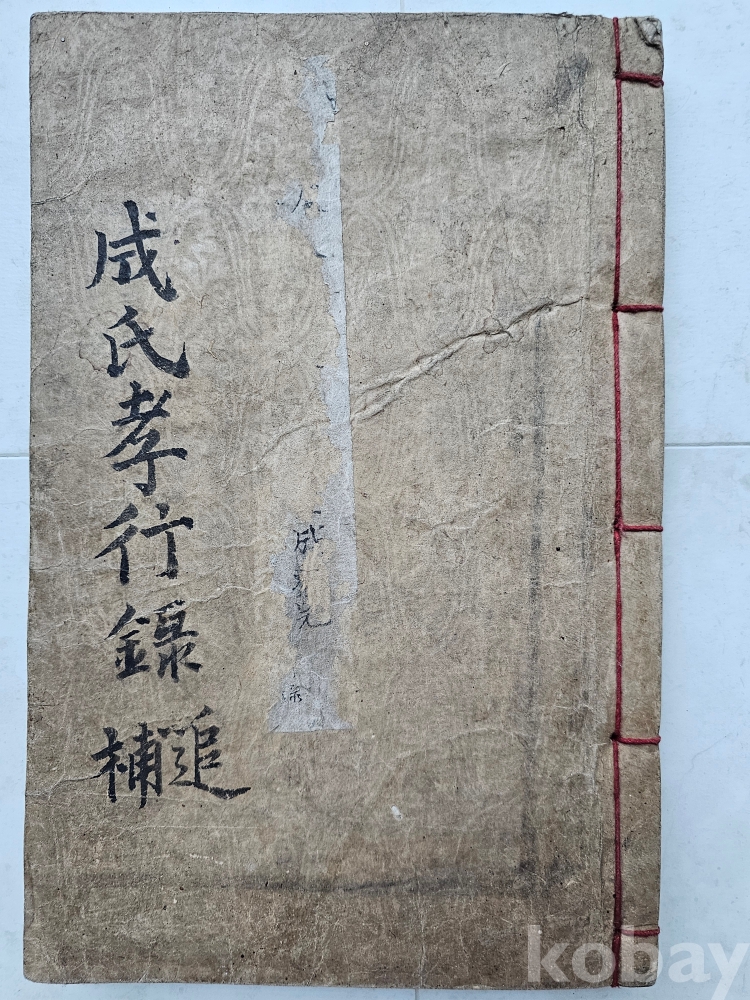 成氏孝行錄
追補
成
kobay